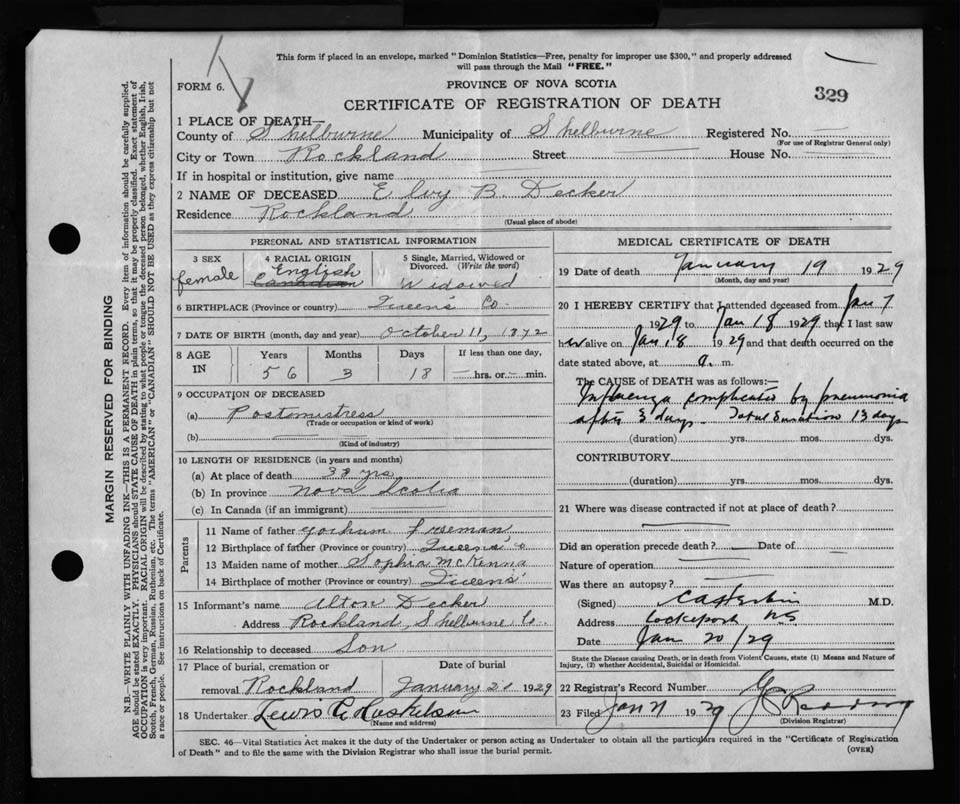 This form if placed in an envelope, marked "Dominion Statistics—Free, penalty for improper use $300," and properly addressed
will pass through the Mail "FREE."
FORM 6.
PROVINCE OF NOVA SCOTIA
CERTIFICATE OF REGISTRATION OF DEATH
329
1 PLACE OF DEATH—
County of Shelburne Municipality of Shelburne Registered No. —
(For use of Registrar General only)
City or Town Rockland Street — House No. —
If in hospital or institution, give name —
2 NAME OF DECEASED Elvy B. Decker
Residence Rockland
(Usual place of abode)
PERSONAL AND STATISTICAL INFORMATION
3 SEX
female
4 RACIAL ORIGIN
English
Canadian
5 Single, Married, Widowed or
Divorced. (Write the word)
Widowed
6 BIRTHPLACE (Province or country) Queen's Co.
7 DATE OF BIRTH (month, day and year) October 11, 1872
8 AGE
IN
Years Months Days
56 3 18
If less than one day,
— hrs. or — min.
9 OCCUPATION OF DECEASED
(a) Postmistress
(Trade or occupation or kind of work)
(b) —
(Kind of industry)
10 LENGTH OF RESIDENCE (in years and months)
(a) At place of death yrs
(b) In province Nova Scotia
(c) In Canada (if an immigrant) —
Parents
11 Name of father Freeman,
12 Birthplace of father (Province or country) Queens Co
13 Maiden name of mother Sophia McKenna
14 Birthplace of mother (Province or country) Queens'
15 Informant's name Alton Decker
Address Rockland, Shelburne Co.
16 Relationship to deceased Son
17 Place of burial, cremation or
removal Rockland
Date of burial
January 21 1929
18 Undertaker Lewis
(Name and address)
MEDICAL CERTIFICATE OF DEATH
19 Date of death January 19 1929
(Month, day and year)
20 I HEREBY CERTIFY that I attended deceased from Jan 7
1929 to Jan 18 1929 that I last saw
her alive on Jan 18 1929 and that death occurred on the
date stated above, at a. m.
The CAUSE of DEATH was as follows:—
Influenza complicated by pneumonia
after 3 days. Total duration 13 days
(duration) yrs. mos. dys.
CONTRIBUTORY
(duration) yrs. mos. dys.
21 Where was disease contracted if not at place of death?
—
Did an operation precede death? — Date of —
Nature of operation —
Was there an autopsy? —
(Signed) M.D.
Address Lockeport NS
Date Jan 20/29
State the Disease causing Death, or in death from Violent Causes, state (1) Means and Nature of
Injury, (2) whether Accidental, Suicidal or Homicidal.
22 Registrar's Record Number
23 Filed Jan 21 1929
(Division Registrar)
SEC. 46—Vital Statistics Act makes it the duty of the Undertaker or person acting as Undertaker to obtain all the particulars required in the "Certificate of Registration
of Death" and to file the same with the Division Registrar who shall issue the burial permit.
(OVER)
MARGIN RESERVED FOR BINDING
N.B.—WRITE PLAINLY WITH UNFADING INK—THIS IS A PERMANENT RECORD. Every item of information should be carefully supplied.
AGE should be stated EXACTLY. PHYSICIANS should STATE CAUSE OF DEATH in plain terms, so that it may be properly classified. Exact statement of
OCCUPATION is very important. RACIAL ORIGIN will be described by stating to what people or tongue the deceased person belonged, whether English, Irish,
Scotch, French, German, Russian, Ruthenian, etc. The terms "AMERICAN" or "CANADIAN" SHOULD NOT BE USED as they express citizenship but not
a race or people. See instructions on back of Certificate.